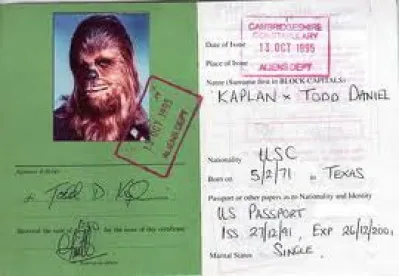 CAMBRIDGESHIRE
CONSTABULARY
Date of Issue
13 OCT 1995
Place of Issue
ALIENS DEPT
Name (Surname first in BLOCK CAPITALS)
KAPLAN × TODD DANIEL
13 OCT 1995
ALIENS DEPT
Nationality USC
Born on 5/2/71 in TEXAS
Passport or other papers as to Nationality and Identity
US PASSPORT
ISS 27/12/91, EXP 26/12/2001
Marital Status SINGLE
Todd D. K
Received the sum of
for the issue of this certificate